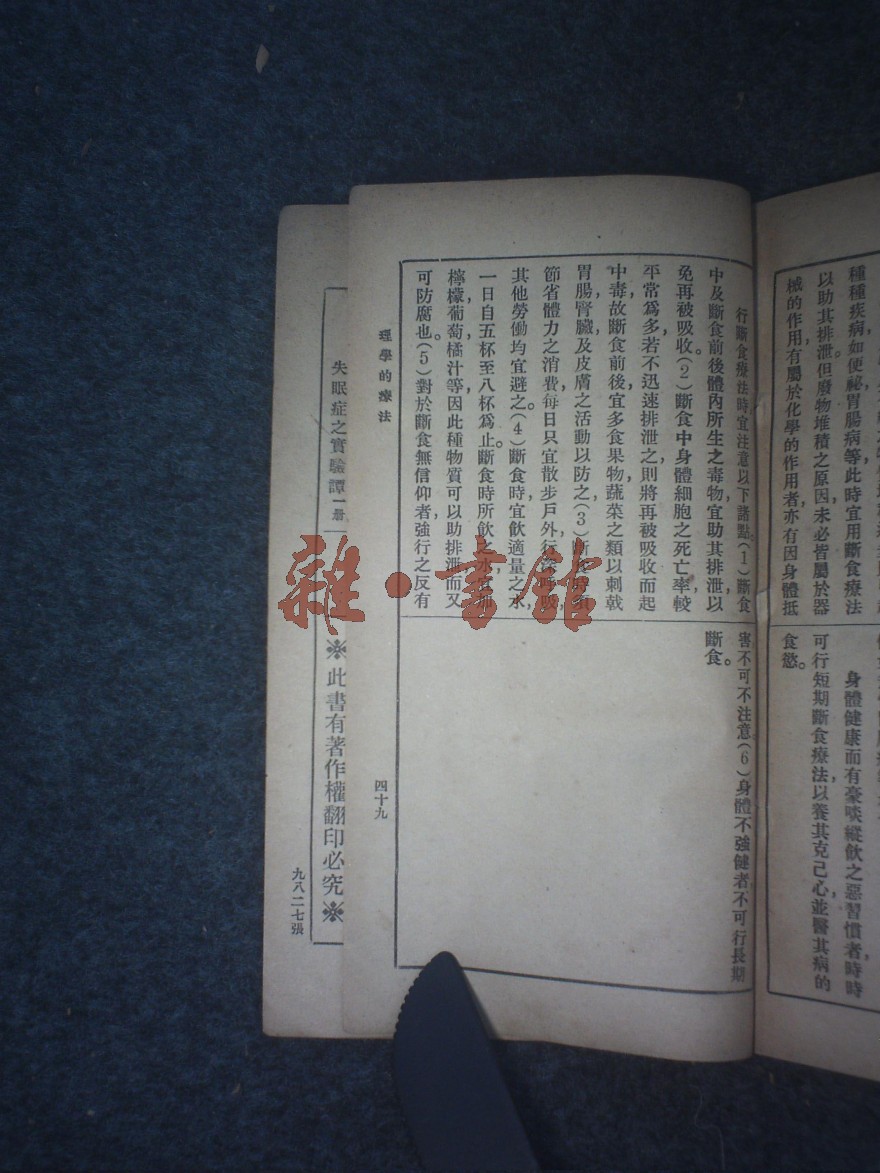 種種疾病如便祕胃腸病等此時宜用斷食療法
以助其排泄但廢物堆積之原因未必皆屬於器
械的作用有屬於化學的作用者亦有因身體抵
身體健康而有豪啖縱飲之惡習慣者時時
可行短期斷食療法以養其克己心並醫其病的
食慾。
行斷食療法時宜注意以下諸點(1)斷食
中及斷食前後體內所生之毒物宜助其排泄以
免再被吸收。(2)斷食中身體細胞之死亡率較
平常爲多若不迅速排泄之則將再被吸收而起
中毒故斷食前後宜多食果物蔬菜之類以刺戟
胃腸腎臟及皮膚之活動以防之(3)斷食時須
節省體力之消費每日只宜散步戶外行深呼吸,
其他勞働均宜避之。(4)斷食時宜飲適量之水,
一日自五杯至八杯爲止。斷食時所飲之水宜加
檸檬葡萄橘汁等因此種物質可以助排泄而又
可防腐也。(5)對於斷食無信仰者強行之反有
害不可不注意(6)身體不強健者不可行長期
斷食。
理學的療法
四十九
失眠症之實驗譚一册
※此書有著作權翻印必究※
九八二七張
雜·書館